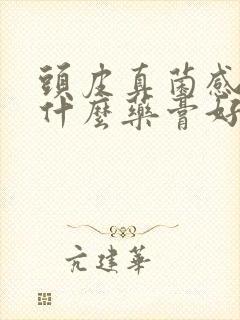 頭皮真菌感
什麼藥膏好
亢建華